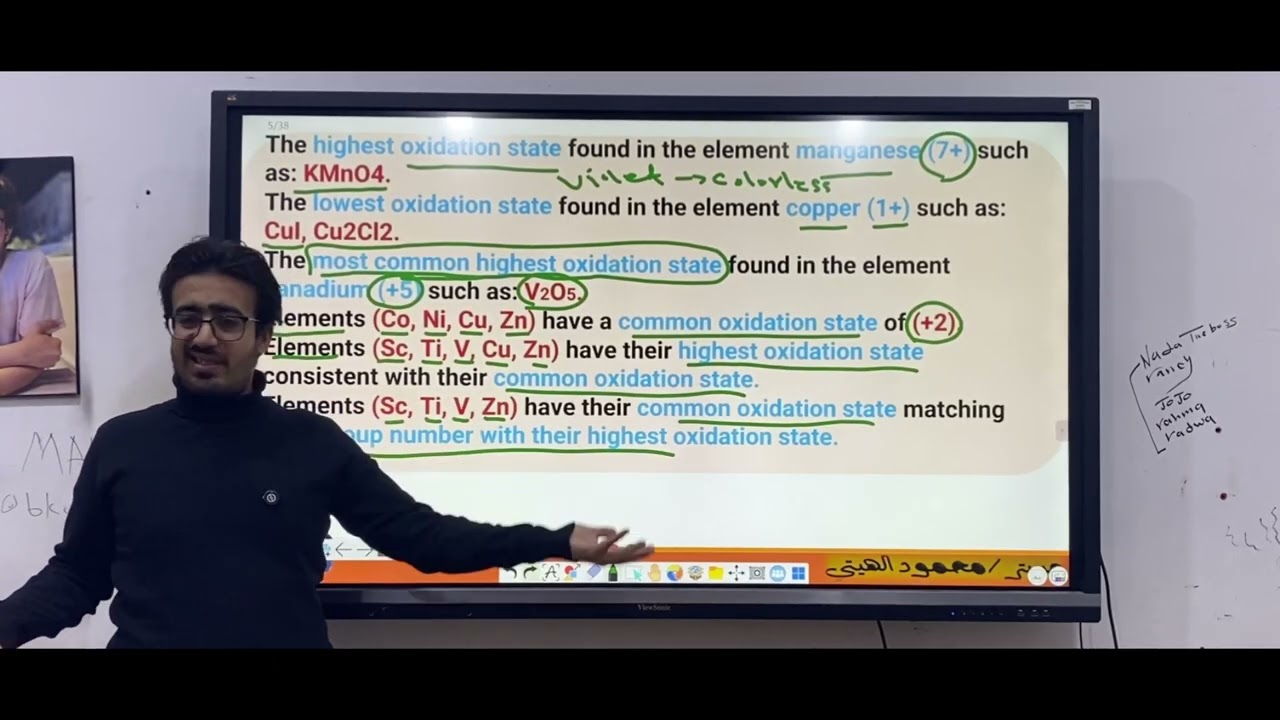 5/38
The highest oxidation state found in the element manganese (7+) such
as: KMnO4.
violet → colorless
The lowest oxidation state found in the element copper (1+) such as:
CuI, Cu2Cl2.
The most common highest oxidation state found in the element
anadium (+5) such as: V2O5.
lements (Co, Ni, Cu, Zn) have a common oxidation state of (+2)
Elements (Sc, Ti, V, Cu, Zn) have their highest oxidation state
consistent with their common oxidation state.
Elements (Sc, Ti, V, Zn) have their common oxidation state matching
oup number with their highest oxidation state.
محمود الهيتى
ViewSonic
MA
@bk
Nada The boss
JoJo
rahma
radwa